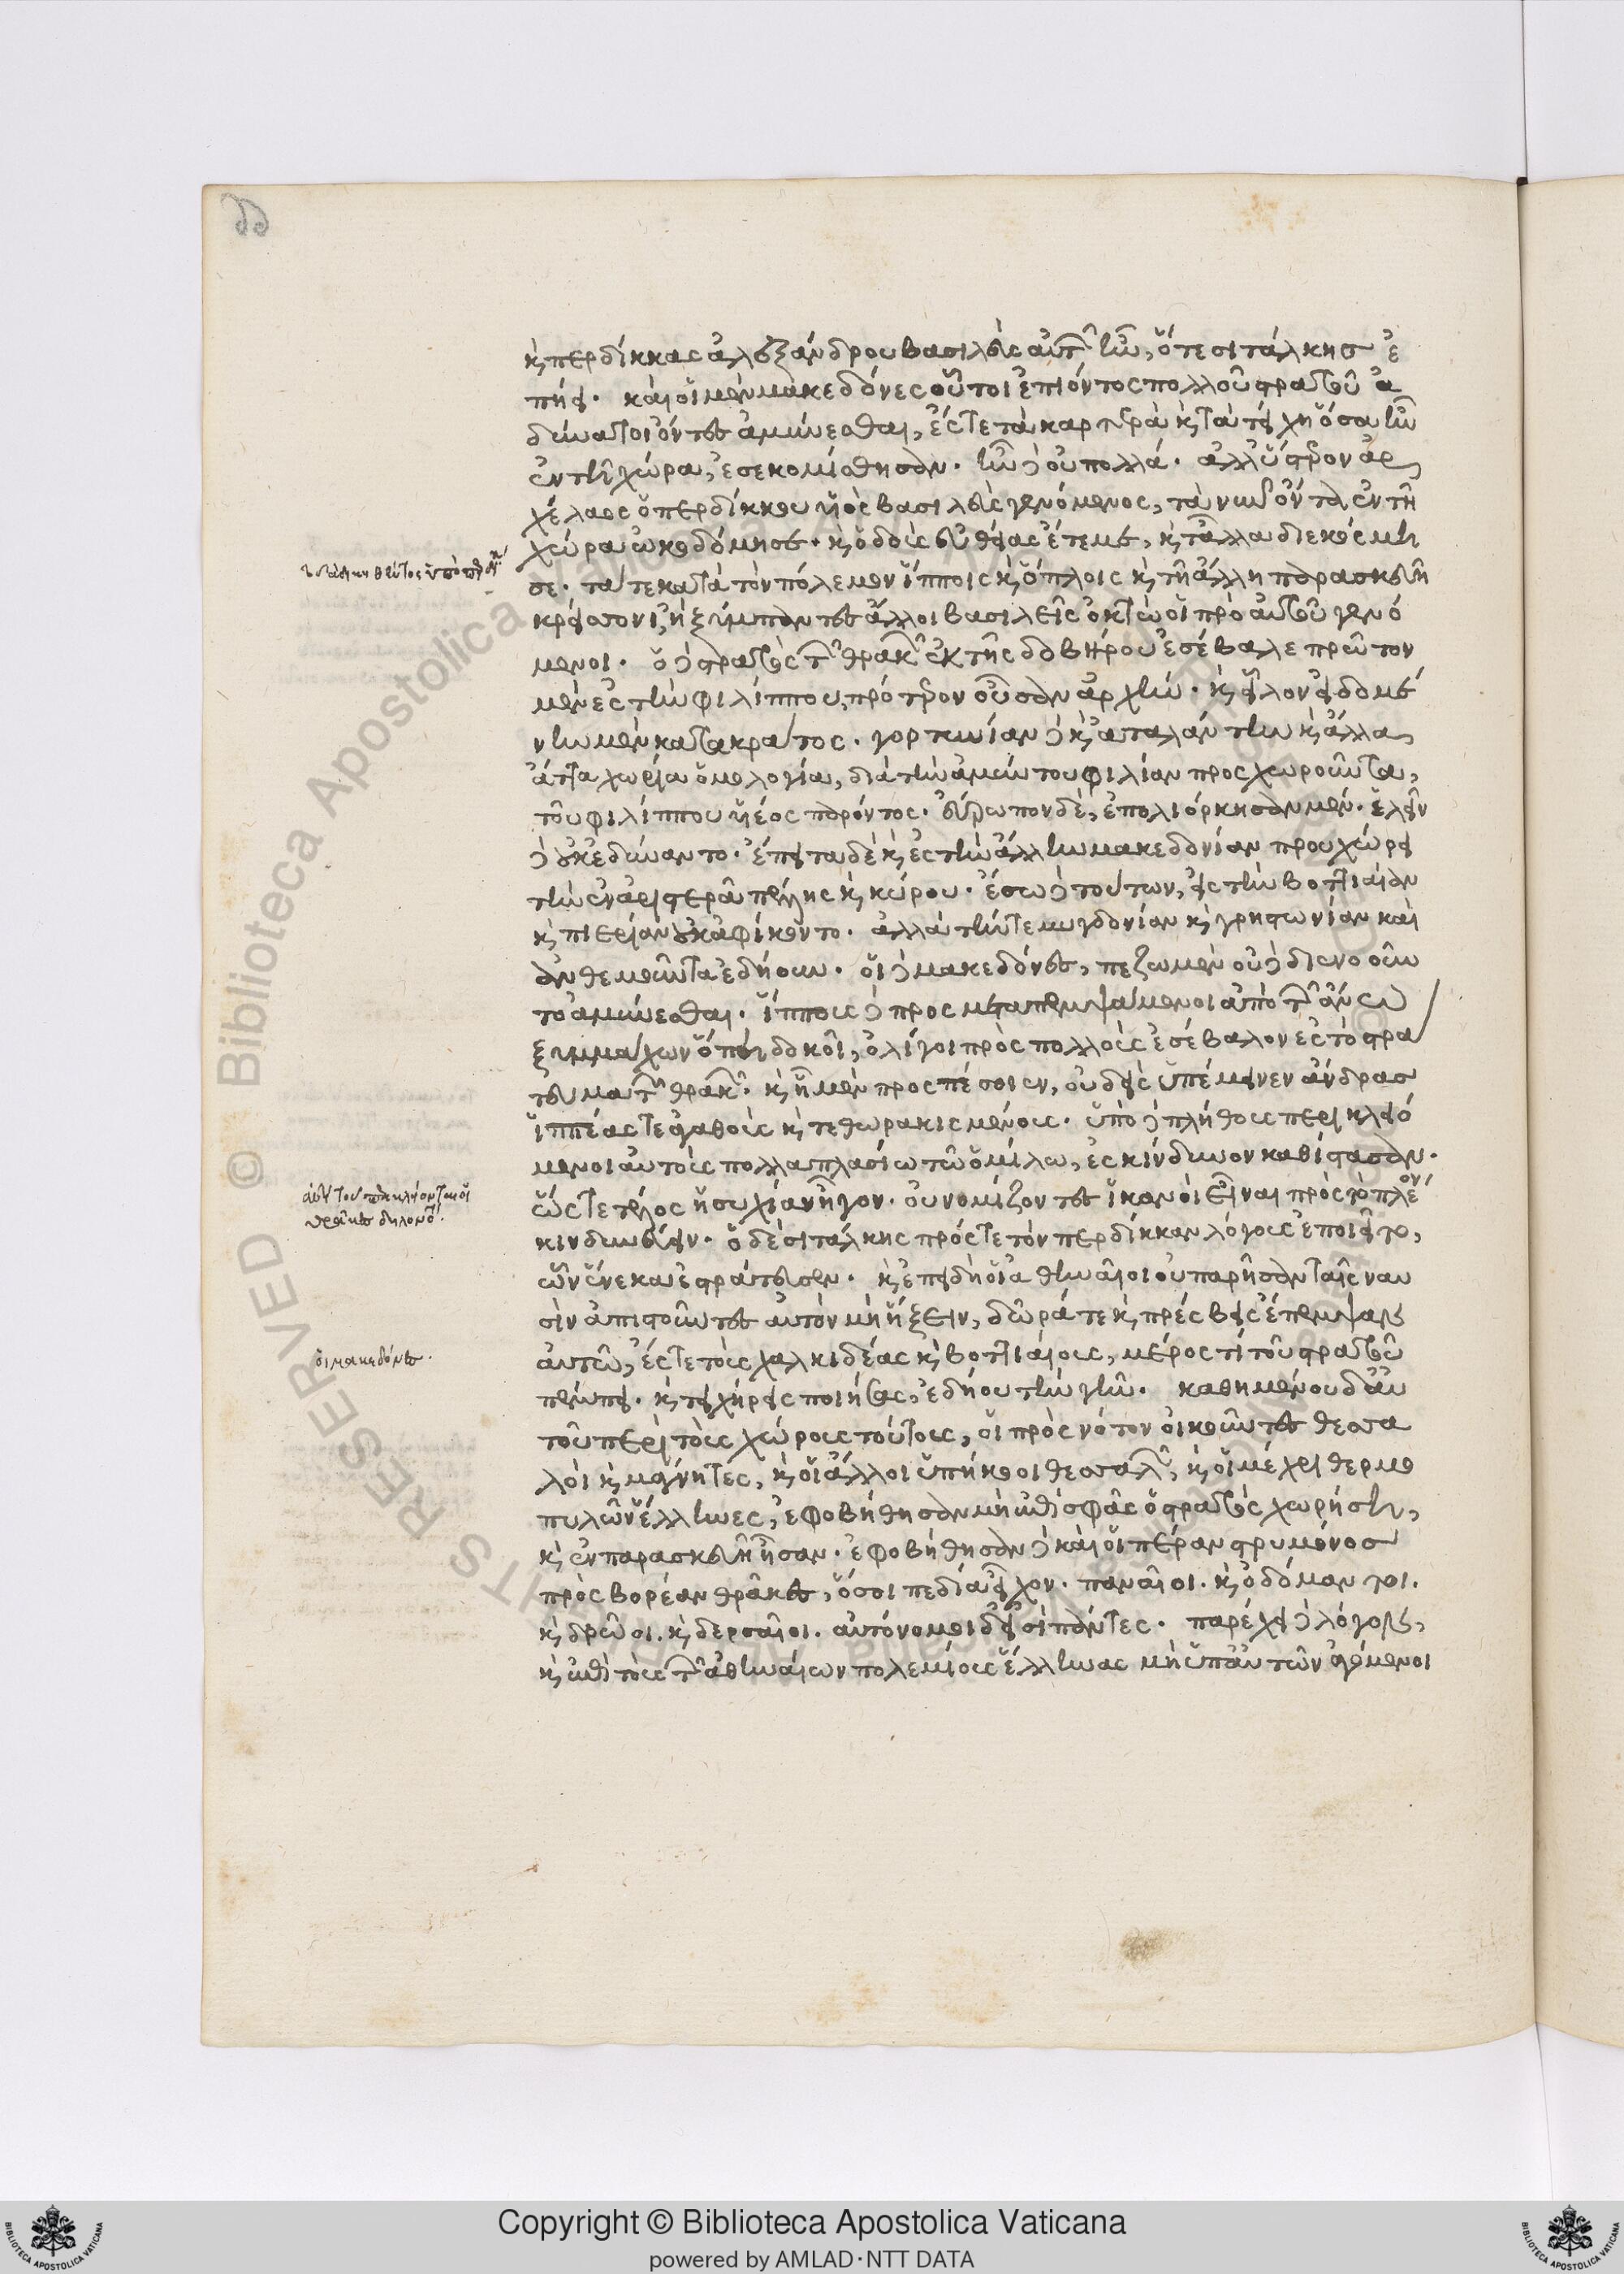 κ περδίκκας ἀλεξάνδρου βασιλεὺς αὐτῶν ἦν, ὅτε σιτάλκησ ἐ
πήει. καὶ οἱ μὲν μακεδόνες οὗτοι ἐπιόντος πολλοῦ στρατοῦ ἀ
δύνατοι ὄντες ἀμύνεσθαι, ἔς τε τὰ καρτερὰ κ τὰ τείχη ὅσα ἦν
ἐν τῆ χώρα, ἐσεκομίσθησαν. ἦν δὲ οὐ πολλά. ἀλλ' ὕστερον ἀρ
χέλαος ὁ περδίκκου υἱὸς βασιλεὺς γενόμενος, τὰ νῦν ὄντα ἐν τῆ
χώρα ὠκοδόμησε. κ ὁδοὺς εὐθείας ἔτεμε, κ τἄλλα διεκόσμη
σε. τά τε κατὰ τὸν πόλεμον ἵπποις κ ὅπλοις κ τῆ ἄλλη παρασκευῆ
κρείσσονι, ἢ ξύμπαντες ἄλλοι βασιλεῖς ὀκτὼ οἱ πρὸ αὐτοῦ γενό
μενοι. ὁ δὲ στρατὸς τῶν θρακῶν ἐκ τῆς δοβήρου ἐσέβαλε πρῶτον
μὲν ἐς τὴν φιλίππου, πρότερον οὖσαν ἀρχήν. κ εἷλον εἰδομε
νὴν μὲν κατακράτος. γορτυνίαν δὲ κ ἀταλάντην κ ἄλλα
ἄττα χωρία ὁμολογία, διὰ τὴν ἀμύντου φιλίαν προςχωροῦντα,
τοῦ φιλίππου υἱέος παρόντος. εὐρωπον δὲ, ἐπολιόρκησαν μέν. ἑλεῖν
δὲ οὐκ ἐδύναντο. ἔπειτα δὲ κ ἐς τὴν ἄλλην μακεδονίαν προυχώρει
τὴν ἐν ἀριστερᾶ πέλλης κ κύρου. ἔσω δὲ τούτων, εἰς τὴν βοττιαίαν
κ πιερίαν οὐκ ἀφίκοντο. ἀλλὰ τήν τε μυγδονίαν κ γρηστωνίαν καὶ
ἀνθεμοῦντα ἐδήουν. οἱ δὲ μακεδόνες, πεζῶ μὲν οὐδὲ διενοοῦν
το ἀμύνεσθαι. ἵππους δὲ προς μεταπεμψάμενοι ἀπὸ τῶν ἄνω
ξυμμάχων ὅπη δοκοῖ, ὀλίγοι πρὸς πολλοὺς ἐσέβαλον ἐς τὸ στρά
τευμα τῶν θρακῶν. κ ᾗ μὲν προςπέσοιεν, οὐδεὶς ὑπέμεινεν ἄνδρασ
ἱππέας τε ἀγαθοὺς κ τεθωρακισμένους. ὑπὸ δὲ πλήθους περικλειό
μενοι αὐτοὺς πολλαπλασίω τῶ ὁμίλω, ἐς κίνδυνον καθίστασαν.
ὥς τε τέλος ἡσυχίαν ἦγον. οὐ νομίζοντες ἱκανοὶ εἶναι πρὸς τὸ πλέον
κινδυνεύειν. ὁ δὲ σιτάλκης πρός τε τὸν περδίκκαν λόγους ἐποιεῖτο,
ὧν ἕνεκα ἐστράτευσεν. κ ἐπειδὴ οἱ ἀθηναῖοι οὐ παρῆσαν ταῖς ναυ
σὶν ἀπιστοῦντες αὐτὸν μὴ ἥξειν, δῶρά τε κ πρέσβεις ἔπεμψαν
αὐτῶ, ἔς τε τοὺς χαλκιδέας κ βοττιαίους, μέρος τι τοῦ στρατοῦ
πέμπει. κ τειχήρεις ποιήσας, ἐδήου τὴν γῆν. καθημένου δ' αὐ
τοῦ περὶ τοὺς χώρους τούτους, οἱ πρὸς νότον οἰκοῦντες θεσσα
λοὶ κ μάγνητες, κ οἱ ἄλλοι ὑπήκοοι θεσσαλῶν, κ οἱ μέχρι θερμο
πυλῶν ἕλληνες, ἐφοβήθησαν μὴ ἐπὶ σφᾶς ὁ στρατὸς χωρήση,
κ ἐν παρασκευῆ ἦσαν. ἐφοβήθησαν δὲ καὶ οἱ πέραν στρυμόνοσ
πρὸς βορέαν θρᾶκες, ὅσοι πεδία εἶχον. παναῖοι. κ ὀδόμαντοι.
κ δρῶοι. κ δερσαῖοι. αὐτόνομοι δ' εἰσὶ πάντες. παρέχει δὲ λόγον,
κ ἐπὶ τοὺς τῶν ἀθηναίων πολεμίους ἕλληνας μὴ ὑπ' αὐτῶν ἀγόμενοι
οἱ θρᾶκες δηλονότι.
οἱ μακεδόνες.